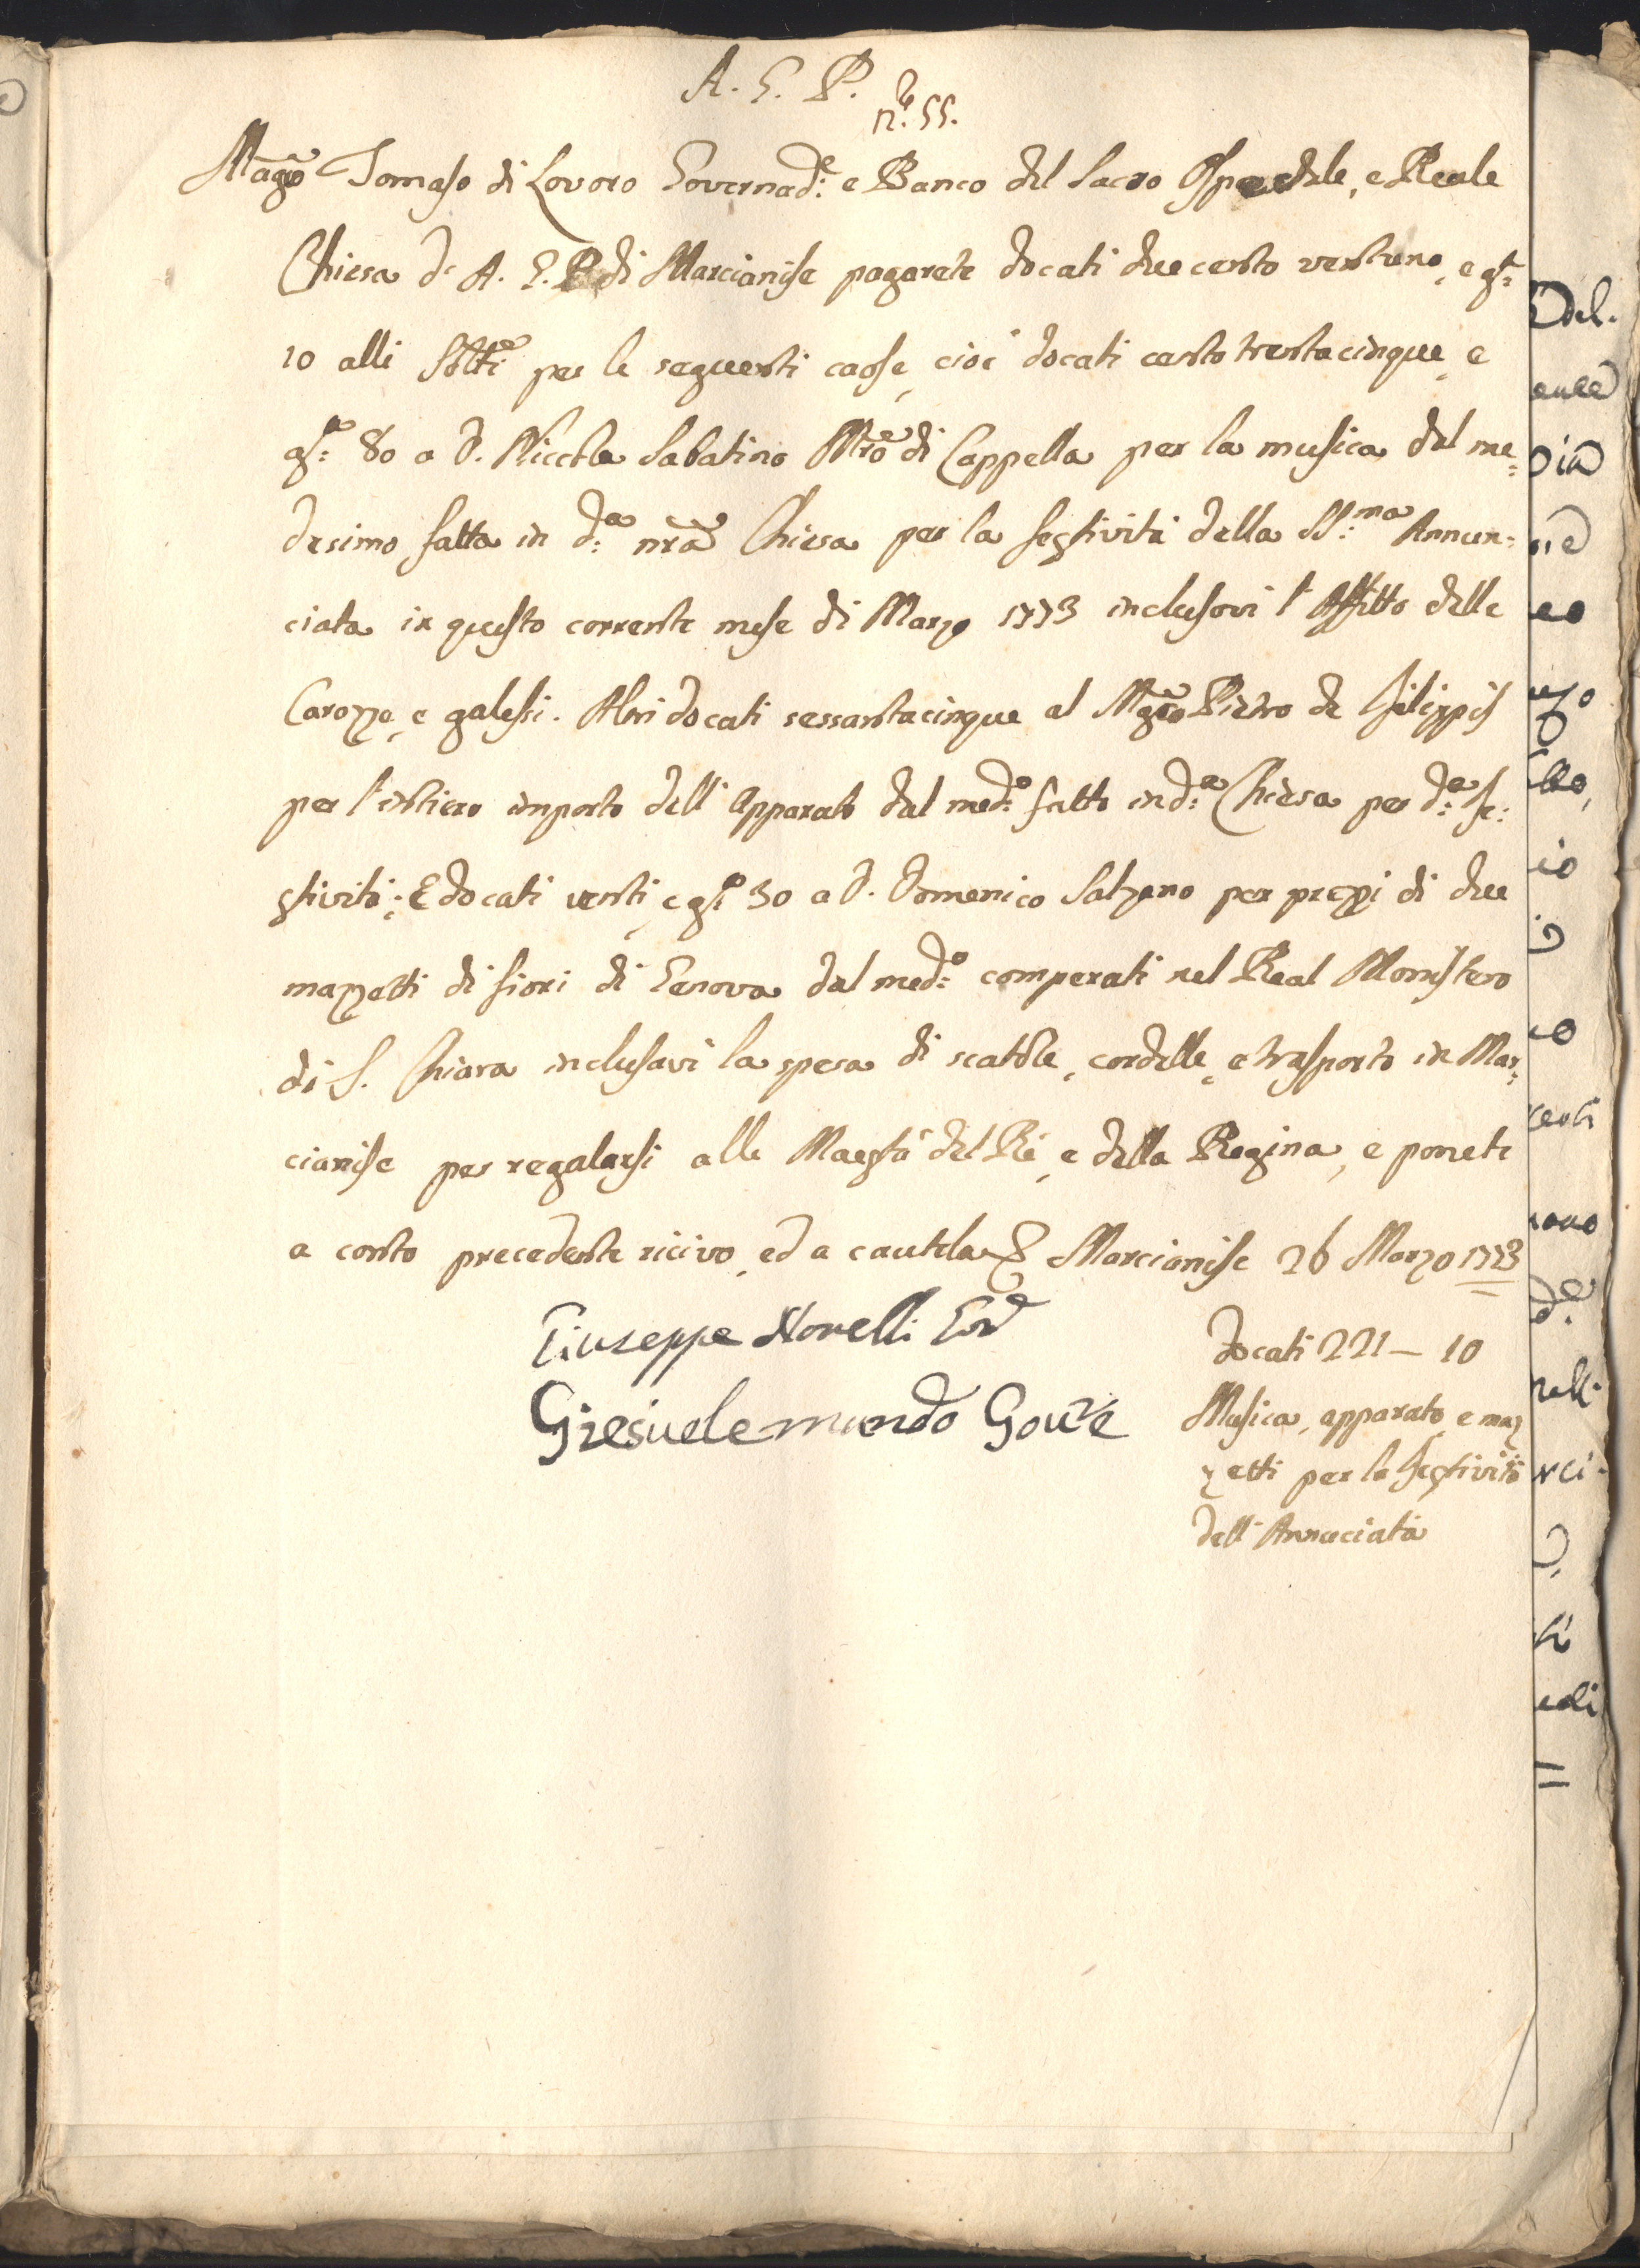 A. G. P.
n.º 55.
Mag.co Tomaso di Lovoro Governad.e e Banco del Sacro Ospedale, e Reale
Chiesa di A. G. P. di Marcianise pagarete docati duecento ventuno, e gr.
10 alli sotti per le seguenti cause, cioè docati cento trentacinque, e
gr.a 80 a D. Niccola Sabatino Mro di Cappella per la musica dal me=
desimo fatta in d.a nra Chiesa per la festività della SS.ma Annun=
ciata in questo corrente mese di Marzo 1773 inclusovi l'Affitto delle
Carozze, e galessi. Altri docati sessantacinque al Mag.co Pietro de Filippis
per l'intiero importo dell'Apparato dal med.o fatto in d.a Chiesa per d.a fe=
stività; E docati venti, e gr.a 30 a D. Domenico Salzano per prezzi di due
mazzetti di fiori di Genova dal med.o comperati nel Real Monistero
di S. Chiara inclusavi la spesa di scatole, cordelle, e trasporto in Mar=
cianise per regalarsi alle Maestà del Rè, e della Regina, e ponete
a conto precedente ricivo, ed a cautela Marcianise 26 Marzo 1773
Giuseppe Novelli Gov.e
Giesuele mundo Gov.re
Docati 221 — 10
Musica, apparato, e maz
zetti per la Festività
dell'Annuciata